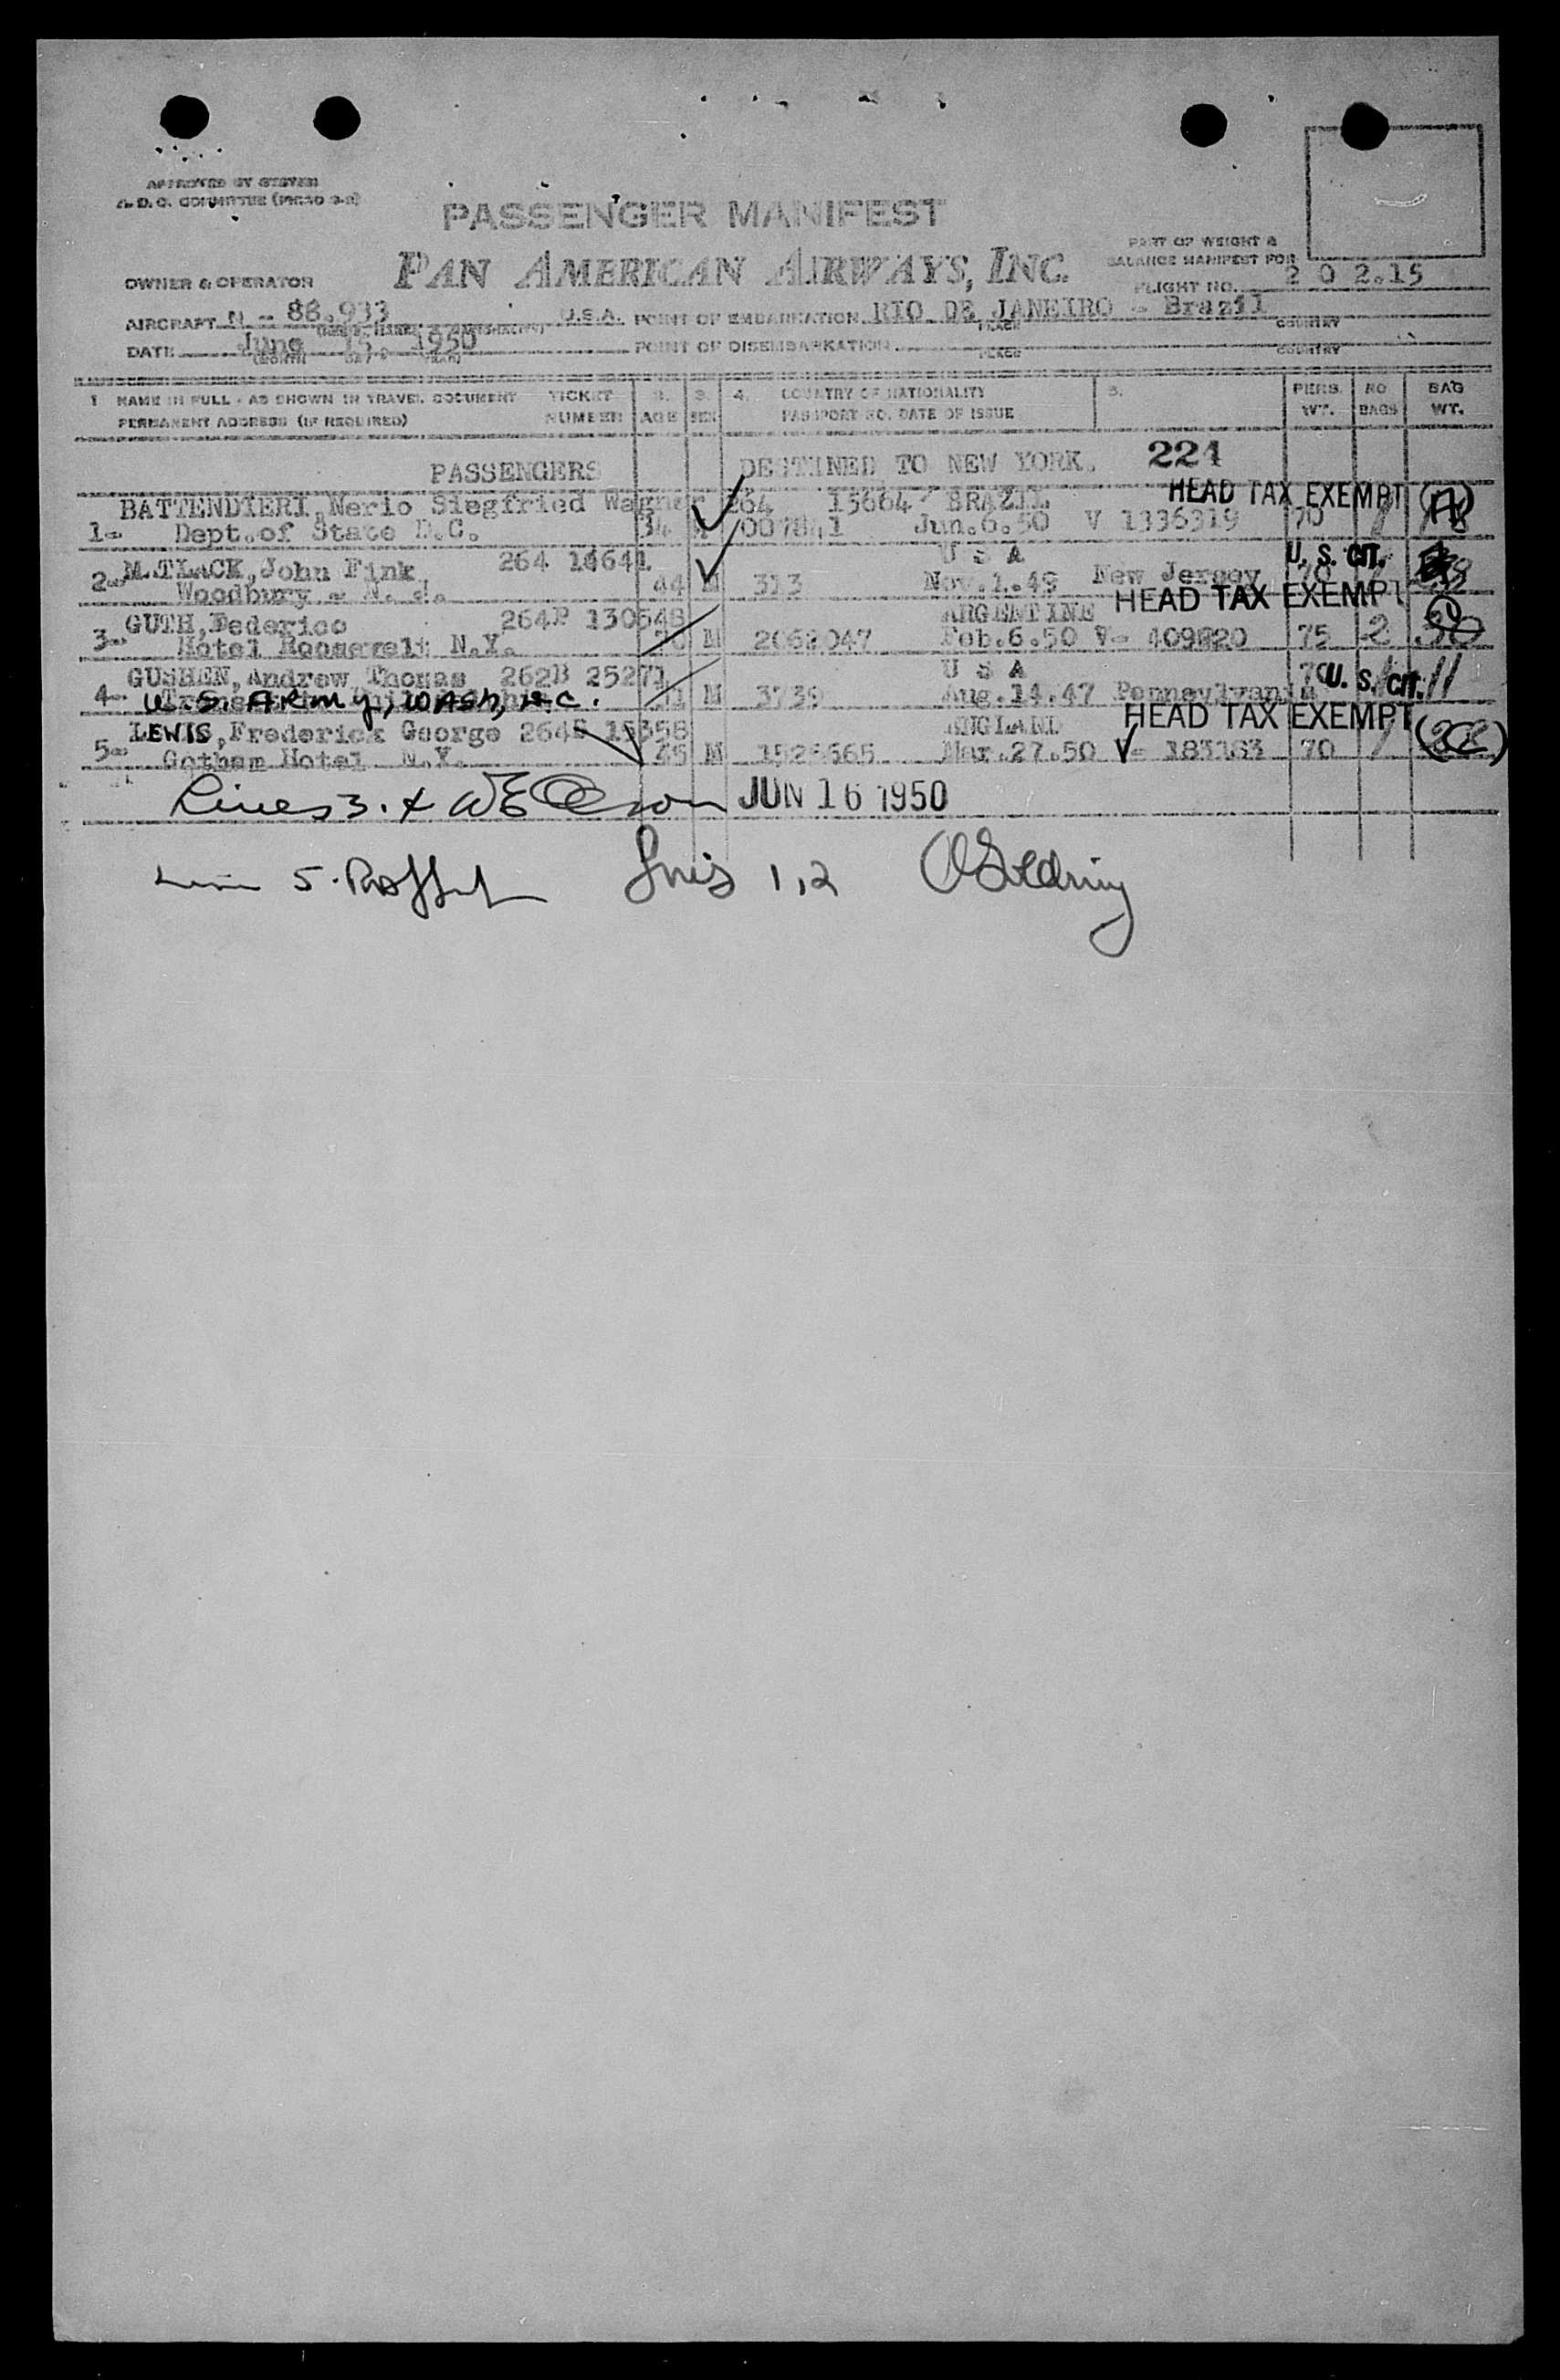 APPROVED BY SYSTEM
A.D.C. COMMITTEE (PICAO 9-8)
PASSENGER MANIFEST
PART OF WEIGHT &
BALANCE MANIFEST FOR
OWNER & OPERATOR PAN AMERICAN AIRWAYS, INC. FLIGHT NO. 2 0 2.15
AIRCRAFT N - 88.933 U.S.A. POINT OF EMBARKATION RIO DE JANEIRO - Brazil
PLACE COUNTRY
DATE June 15, 1950 POINT OF DISEMBARKATION
(MONTH DAY YEAR) PLACE COUNTRY
1 NAME IN FULL - AS SHOWN IN TRAVEL DOCUMENT TICKET 2. 3. 4. COUNTRY OF NATIONALITY 5. PERS. NO BAG
PERMANENT ADDRESS (IF REQUIRED) NUMBER AGE SEX PASSPORT NO. DATE OF ISSUE WT. BAGS WT.
PASSENGERS DESTINED TO NEW YORK. 221
BATTENDIERI, Nerio Siegfried Wagner 264 15664 BRAZIL HEAD TAX EXEMPT
1- Dept.of State D.C. 34 Jun.6.50 V 1336319 70
M.TLACK, John Fink 264 14641 U S A U. S. CIT.
2- Woodbury - N. J. 44 M 313 Nov.1.49 New Jersey
GUTH, Federico 264B 130548 ARGENTINE HEAD TAX EXEMPT
3- Hotel Roosevelt N.Y. M 2062047 Feb.6.50 V- 75 2
GUSHEN, Andrew Thomas 262B 25271 U S A 70 U. S. CIT. 11
4- U.S. ARMY, WASH, D.C. M 3739 Aug.14.47 Pennsylvania
LEWIS, Frederick George 264B 15358 ENGLAND HEAD TAX EXEMPT
5- Gotham Hotel N.Y. 45 M Mar.27.50 V- 183183 70
Lines 3. 4 JUN 16 1950
5. 1,2